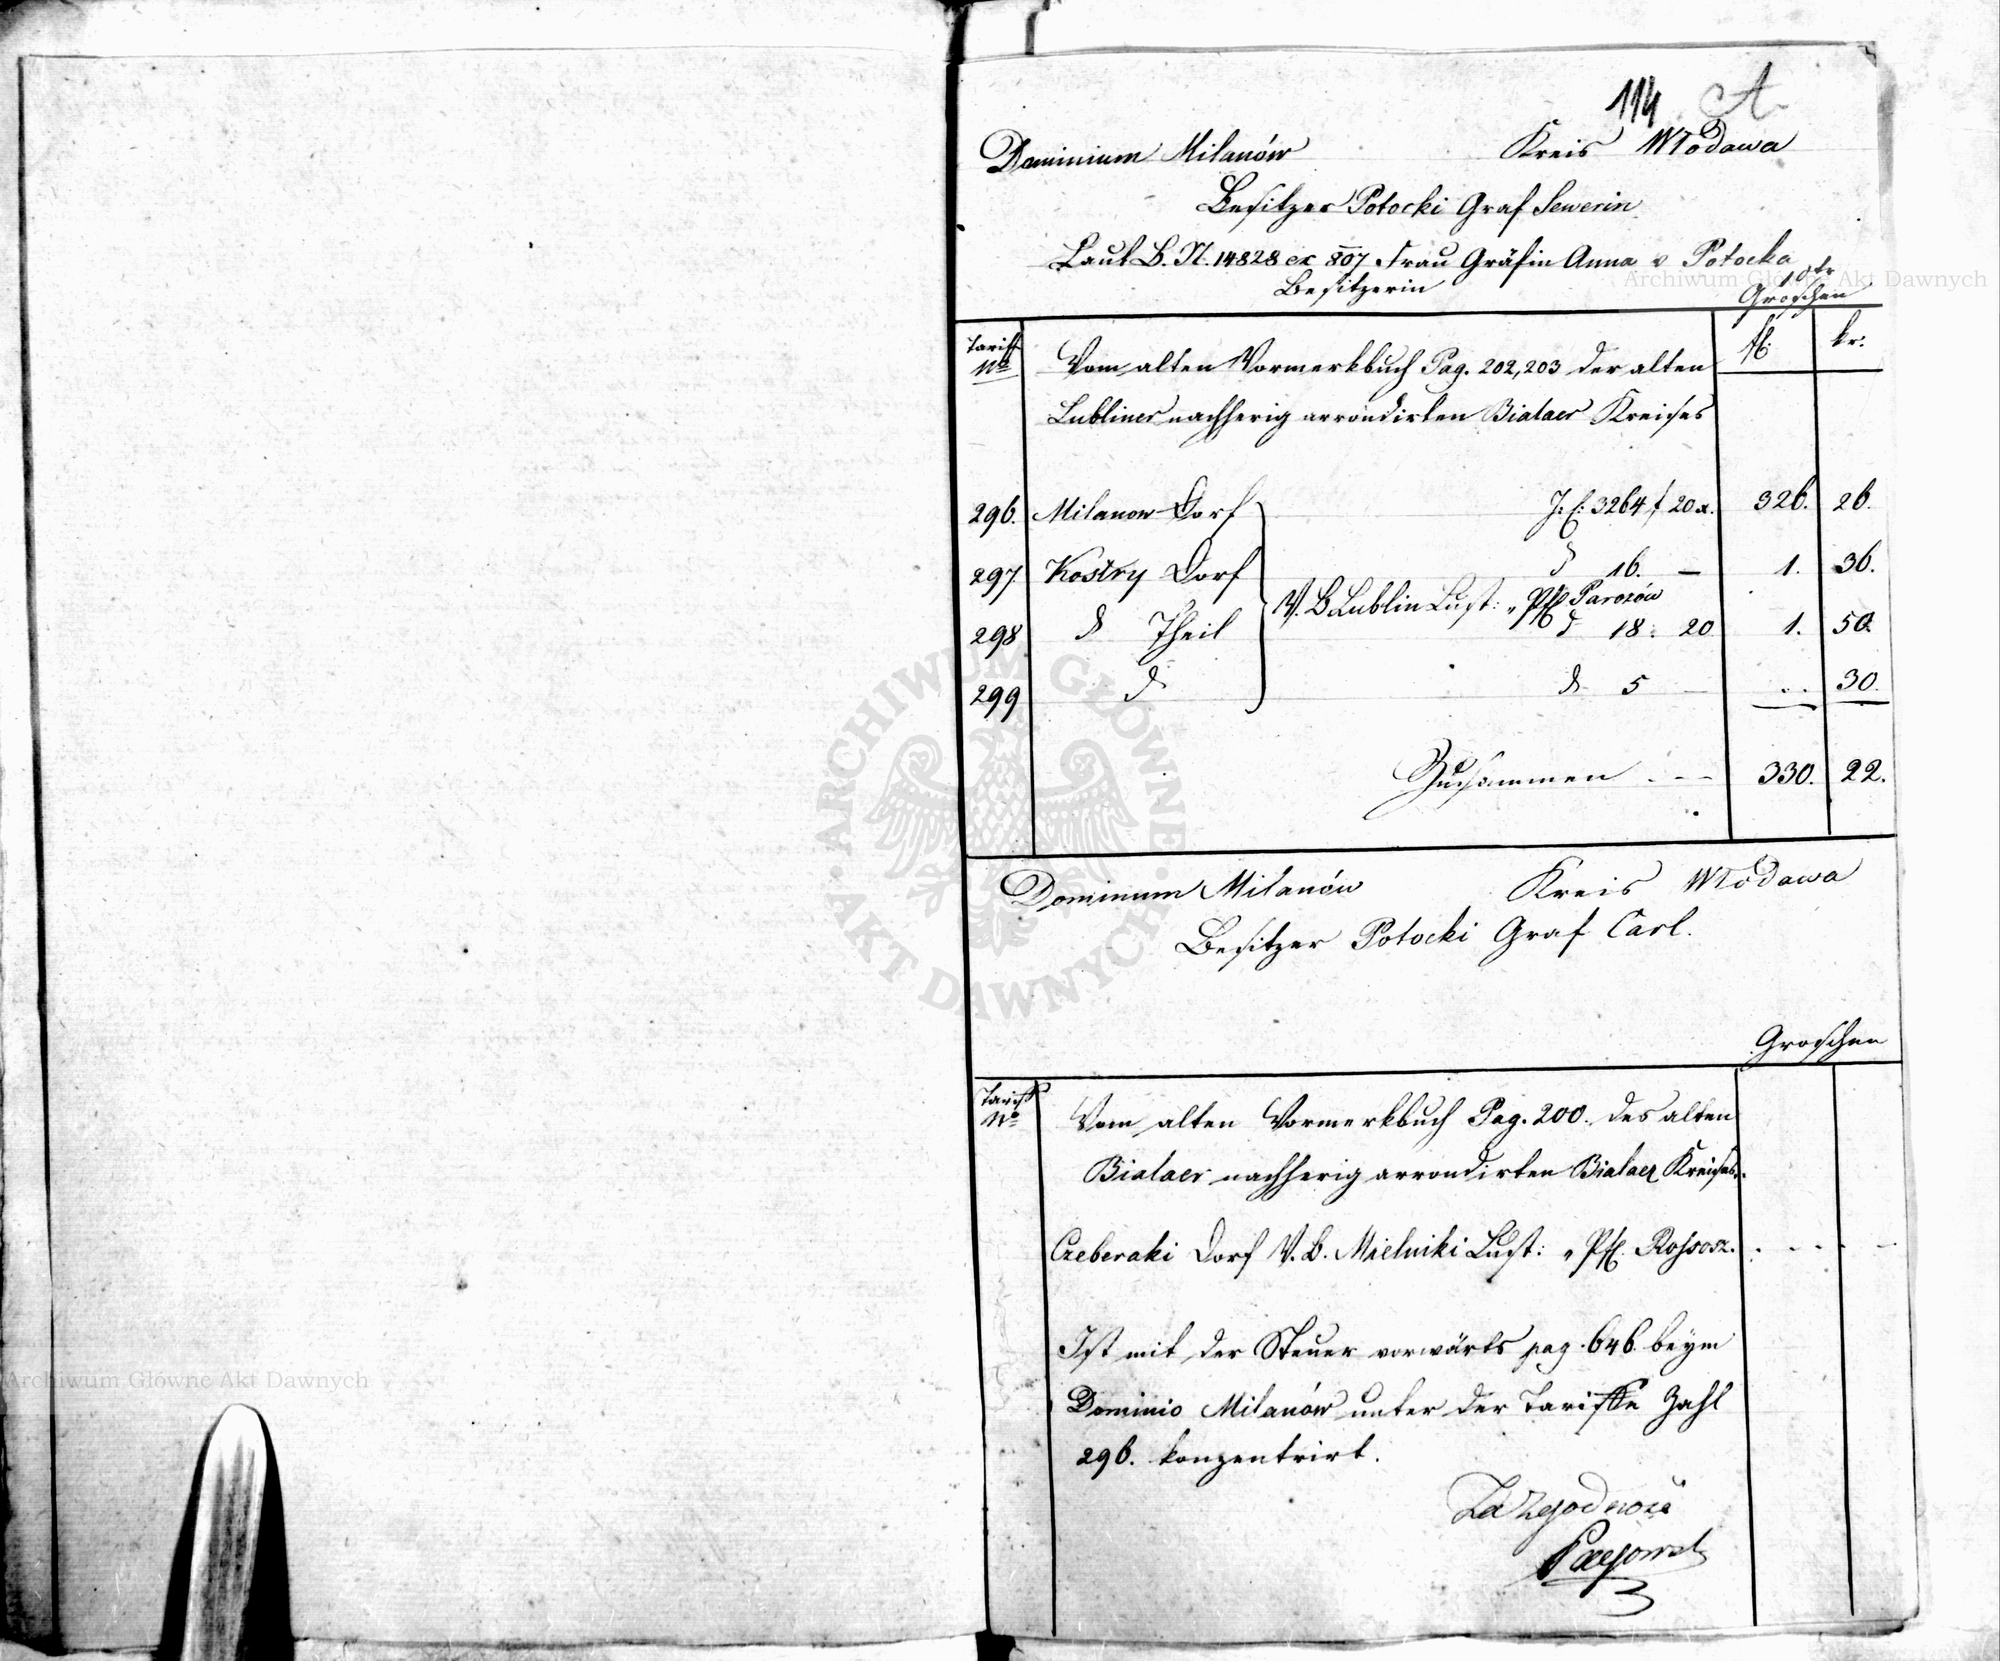 114 A
Dominium Milanów Kreis Włodawa
Besitzer Potocki Graf Sewerin
Laut B. N. 14828 ex 807 Frau Gräfin Anna v Potocka
Besitzerin
10tr
Groschen
Tariff
No
fl. kr.
Vom alten Vormerkbuch Pag. 202, 203 der alten
Lubliner nachherig arrondirten Bialaer Kreises
296. Milanow Dorf J. E: 3264 f 20 x. 326. 26.
297 Kostry Dorf d 16. — 1. 36.
V. B Lublin Lust: " Pf Parozów
298 d Theil d 18. 20 1. 50.
299 d d 5 — .. 30.
Zusammen . — — 330. 22.
Dominum Milanów Kreis Włodawa
Besitzer Potocki Graf Carl.
Groschen
Tariff
No
Vom alten Vormerkbuch Pag. 200. des alten
Bialaer nachherig arrondirten Bialaer Kreises.
Czeberaki Dorf V. B. Mielniki Lust: " Pf. Rossosz.
Ist mit der Steuer vorwärts pag. 646. beym
Dominio Milanów unter der Tariffe Zahl
296. konzentrirt.
Za zgodność
Archiwum Główne Akt Dawnych
Archiwum Główne Akt Dawnych
ARCHIWUM GŁÓWNE AKT DAWNYCH